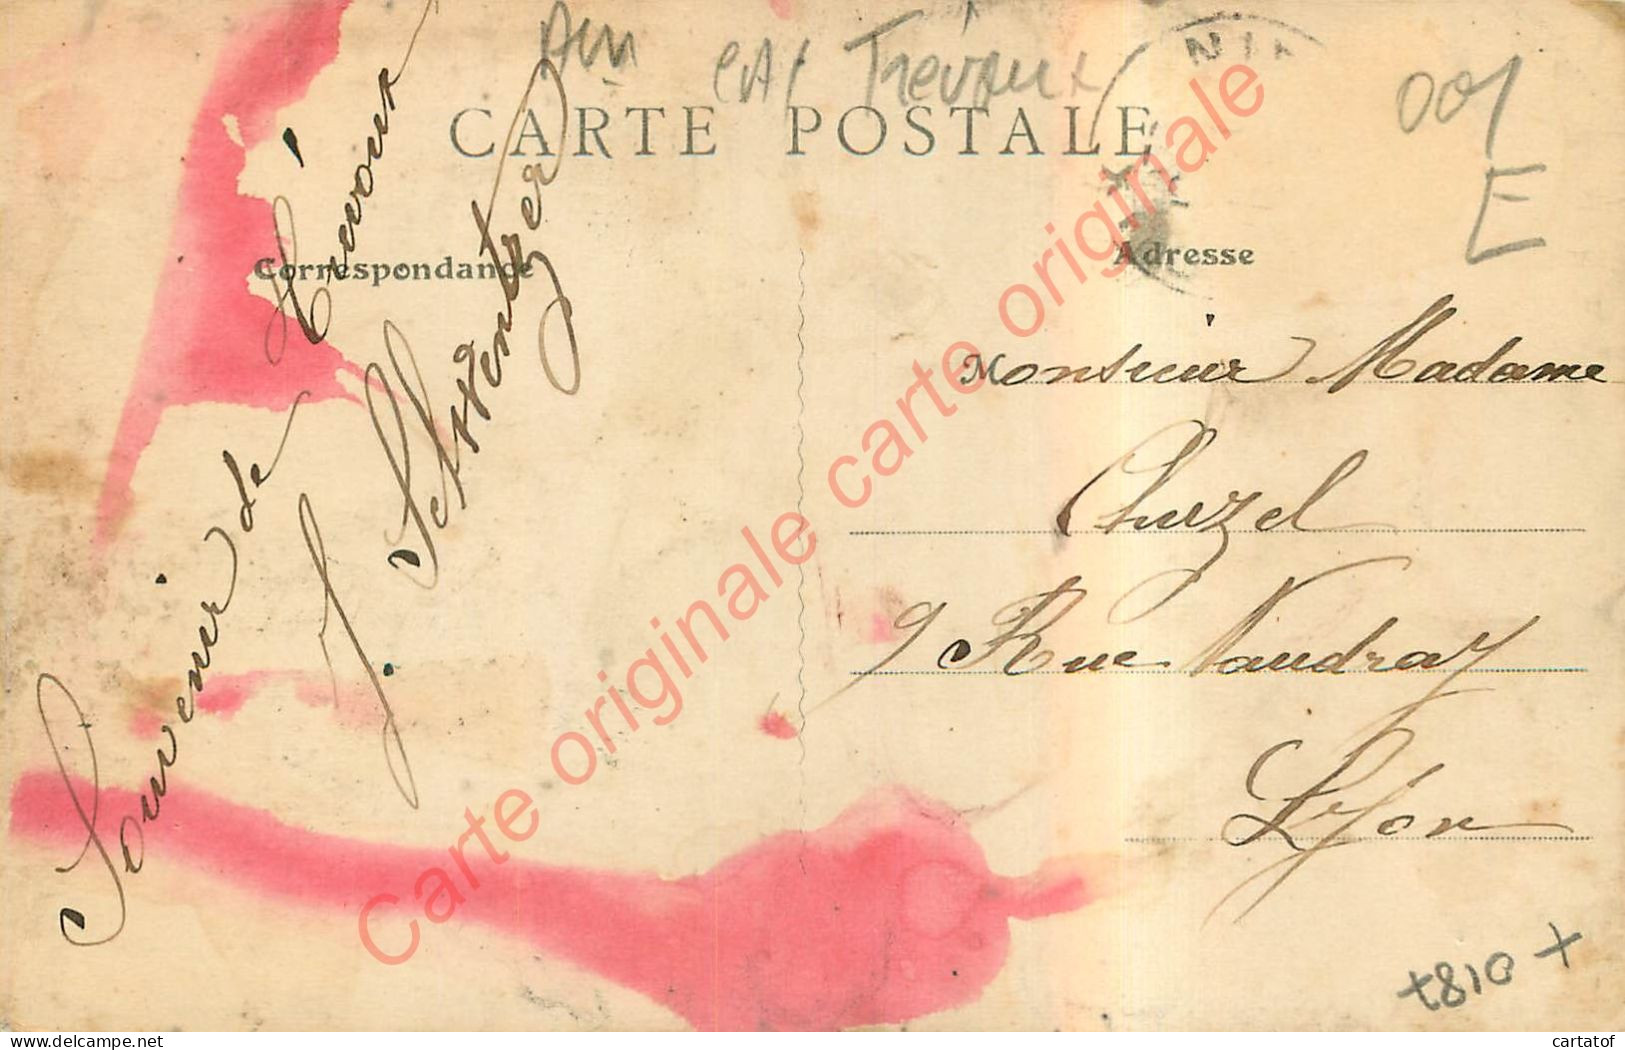 Ain CAC Trévoux
001
E
CARTE POSTALE
Correspondance
Adresse
Souvenir de Trévoux
J. Schwentzer
Monsieur Madame
Chuzel
9 Rue Vaudray
Lyon
+810+
Carte originale carte originale
delcampe.net
cartatof